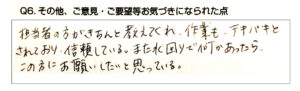 Q6. その他、ご意見・ご要望等お気づきになられた点
担当者の方がきちんと教えてくれ、作業も、テキパキと
されており、信頼している。また水回りで何かあったら、
この方にお願いしたいと思っている。